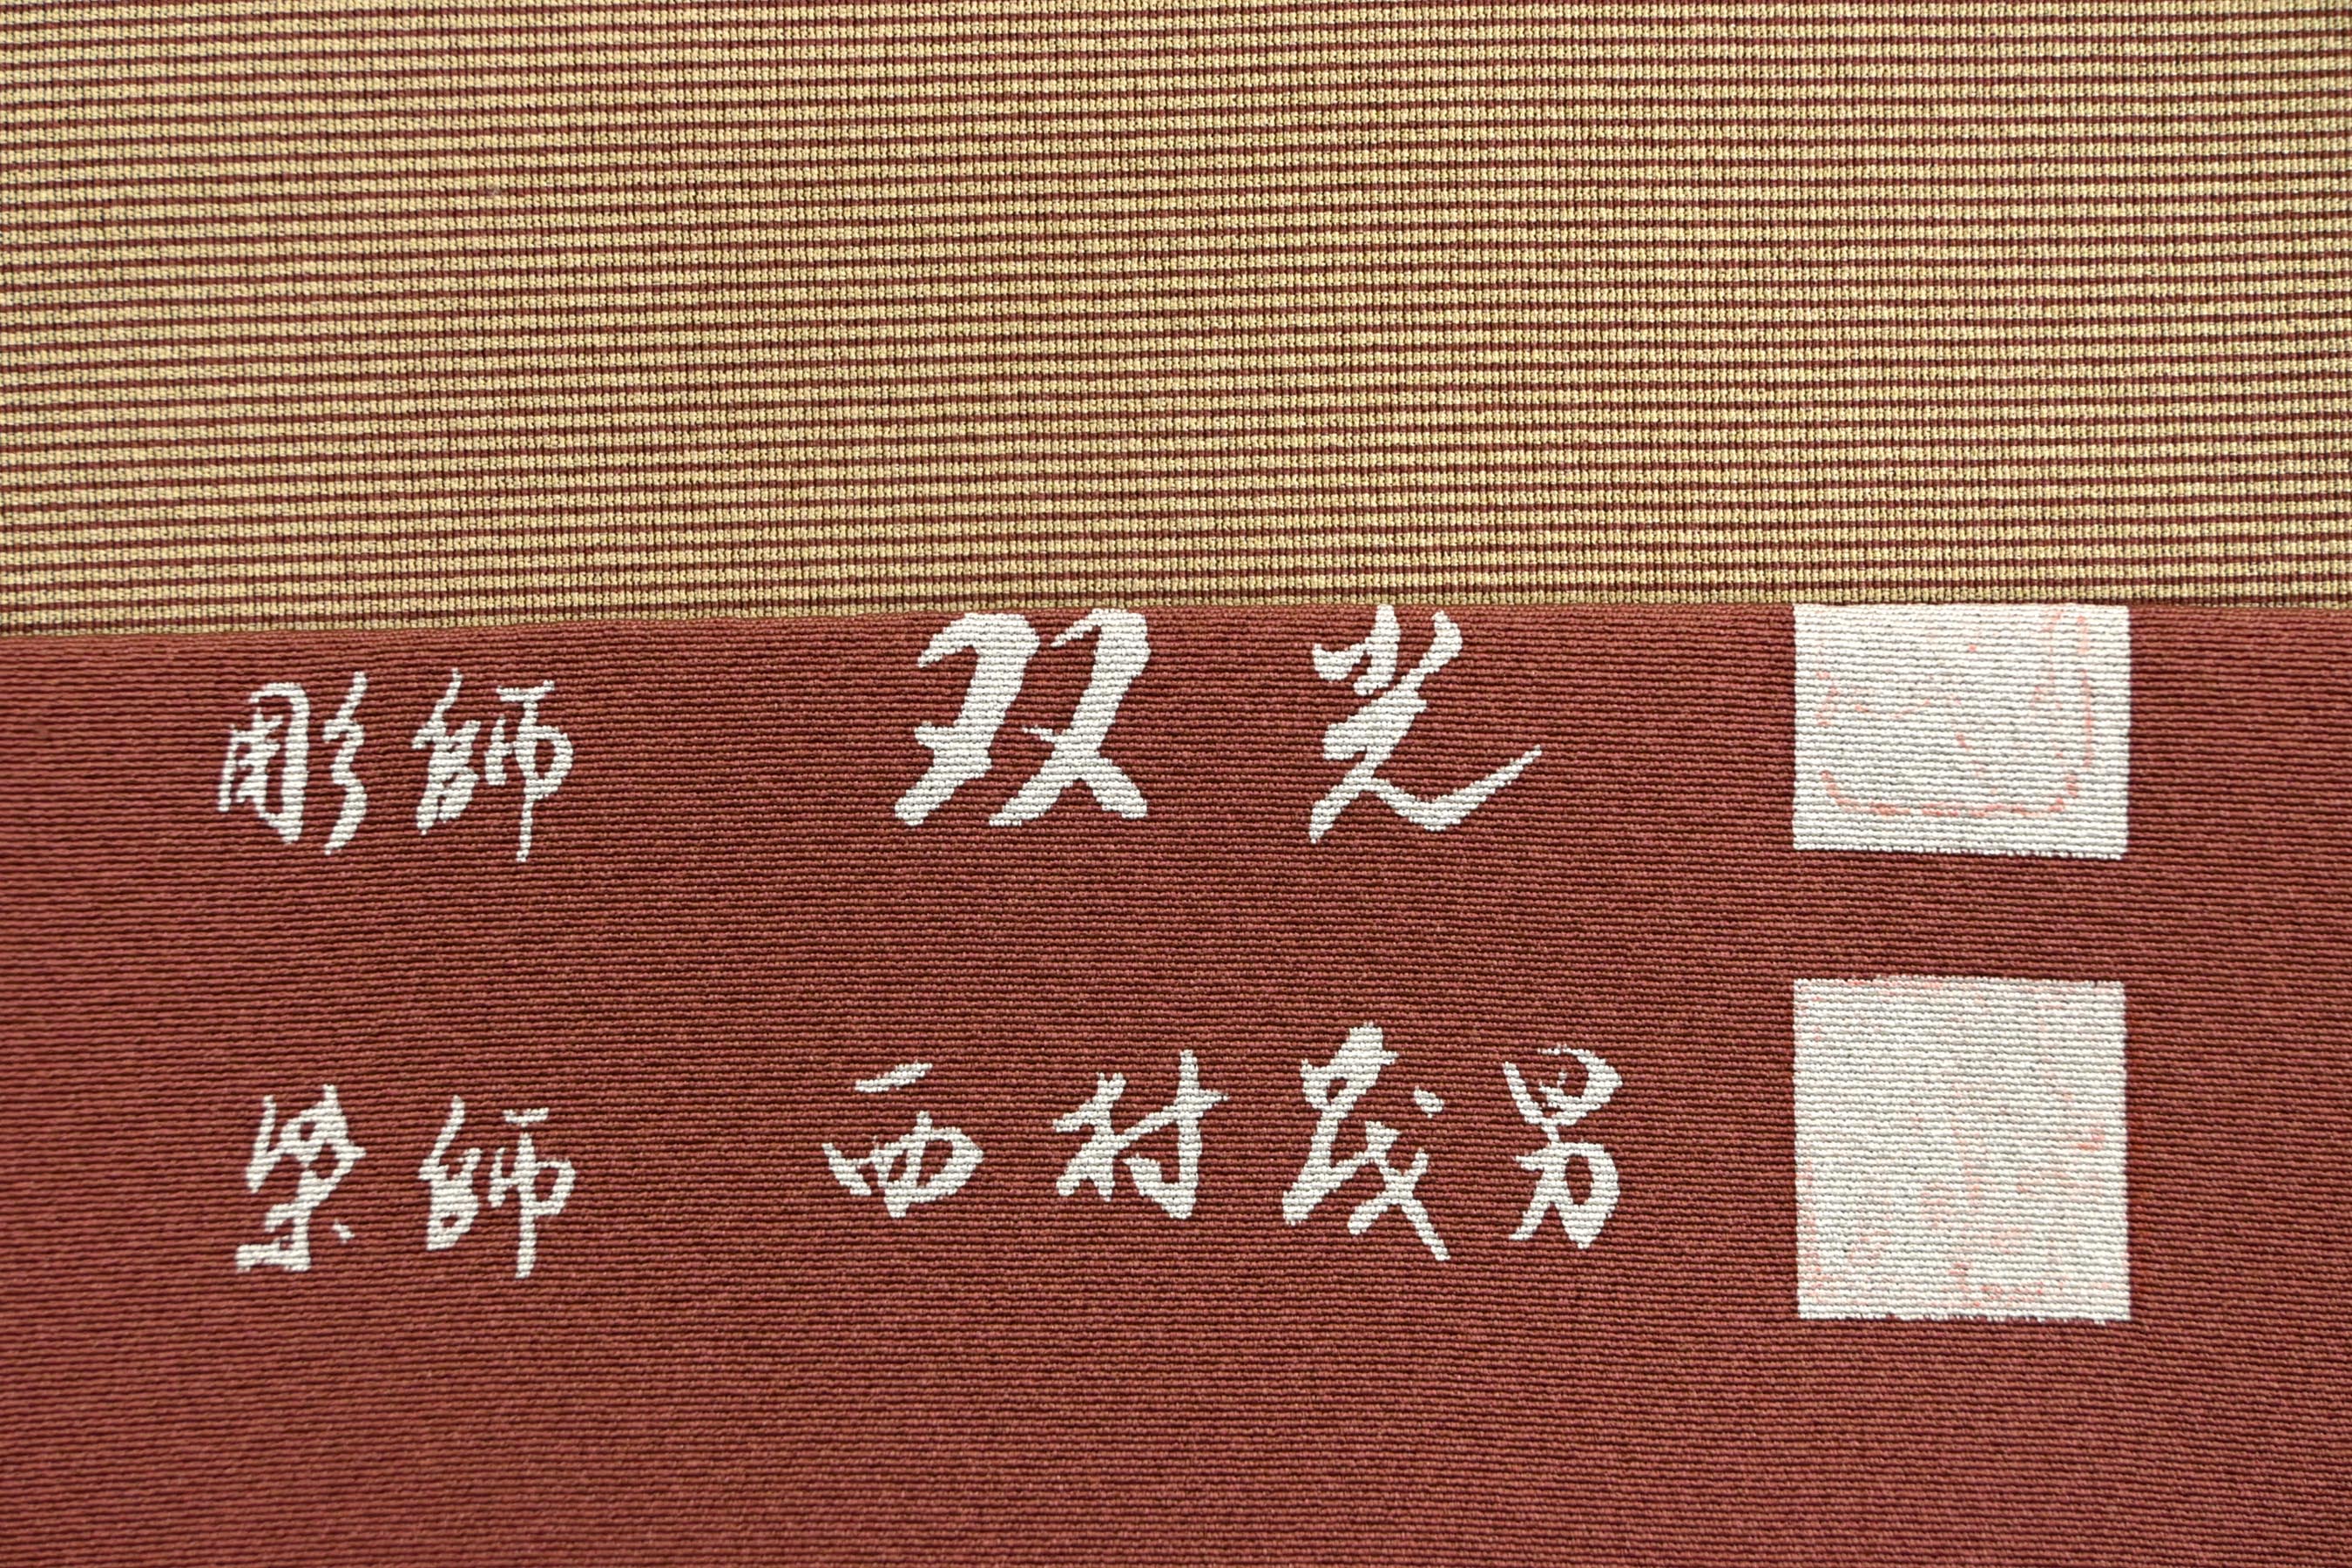 彫師 双光
染師 西村茂男